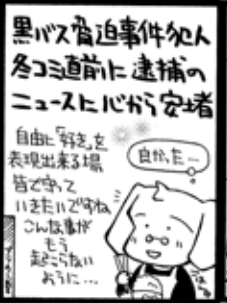 黒バス脅迫事件犯人
冬コミ直前に逮捕の
ニュースに心から安堵
自由に「好き」を
表現出来る場
皆で守って
いきたいですね
こんな事が
もう
起こらない
ように…
良かった…